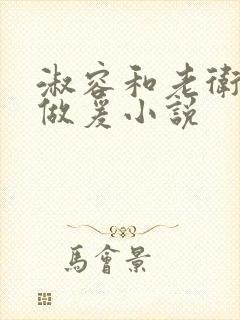 淑容和老衛
做爰小說
馬會景